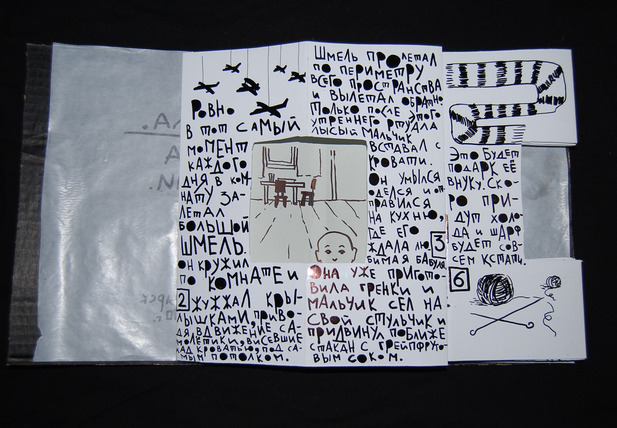 Ровно
в тот самый
момент
каждого
дня в ком
нату за-
летал
большой
шмель.
Он кружил
по комнате и
2 жужжал кры-
лышками, приво-
дя в движение са-
молетики, висевшие
над кроватью, под са-
мым потолком.
Шмель пролетал
по периметру
всего пространства
и вылетал обратно.
Только после этого
утреннего ритуала
лысый мальчик
вставал с
кровати.
Он умылся
оделся и от
правился
на кухню,
где его
ждала лю
3
бимая бабуля.
Она уже пригото-
вила гренки и
мальчик сел на
свой стульчик и
придвинул поближе
стакан с грейпфруто
вым соком.
Это будет
подарк её
внуку. Ско-
ро при-
дут холо-
да и шарф
будет сов-
сем кстати.
6